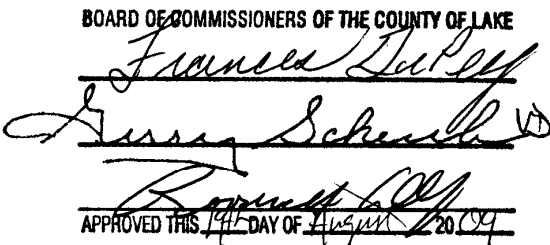 BOARD OF COMMISSIONERS OF THE COUNTY OF LAKE
Frances DuPey
Gerry Scheub
Roosevelt Allen
APPROVED THIS 19th DAY OF August 2009